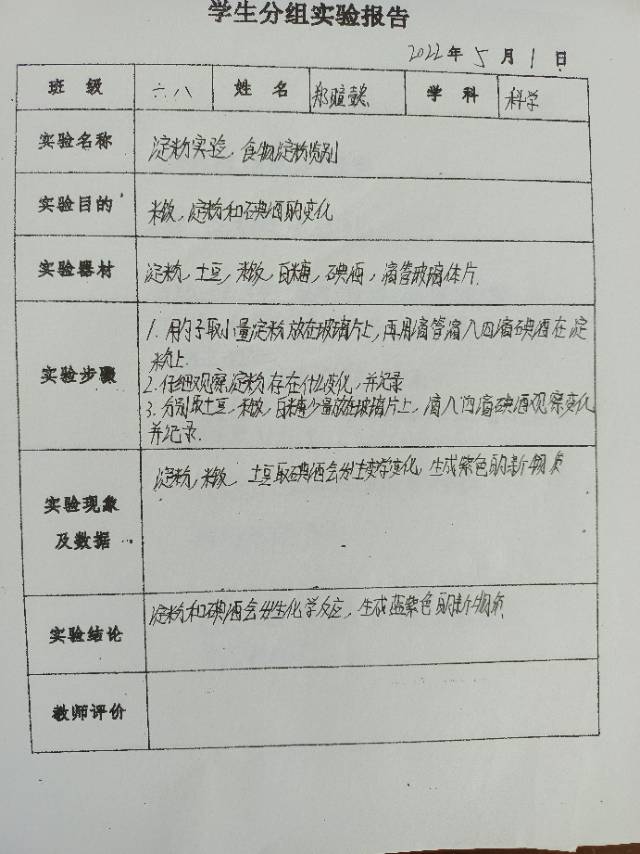 学生分组实验报告
2022年5月1日
班级 六八 姓名 郑暄懿 学科 科学
实验名称 淀粉实验，食物淀粉识别
实验目的 米饭，淀粉和碘酒的变化
实验器材 淀粉，土豆，米饭，白糖，碘酒，滴管玻璃体片.
实验步骤
1. 用勺子取小量淀粉放在玻璃片上，再用滴管滴入四滴碘酒在淀
粉上.
2. 仔细观察淀粉存在什么变化，并记录
3. 分别取土豆，米饭，白糖少量放在玻璃片上，滴入四滴碘酒观察变化
并记录.
实验现象
及数据
淀粉，米饭，土豆取碘酒会发生变学变化，生成紫色的新物质
实验结论
淀粉和碘酒会发生化学反应，生成蓝紫色的新物质
教师评价